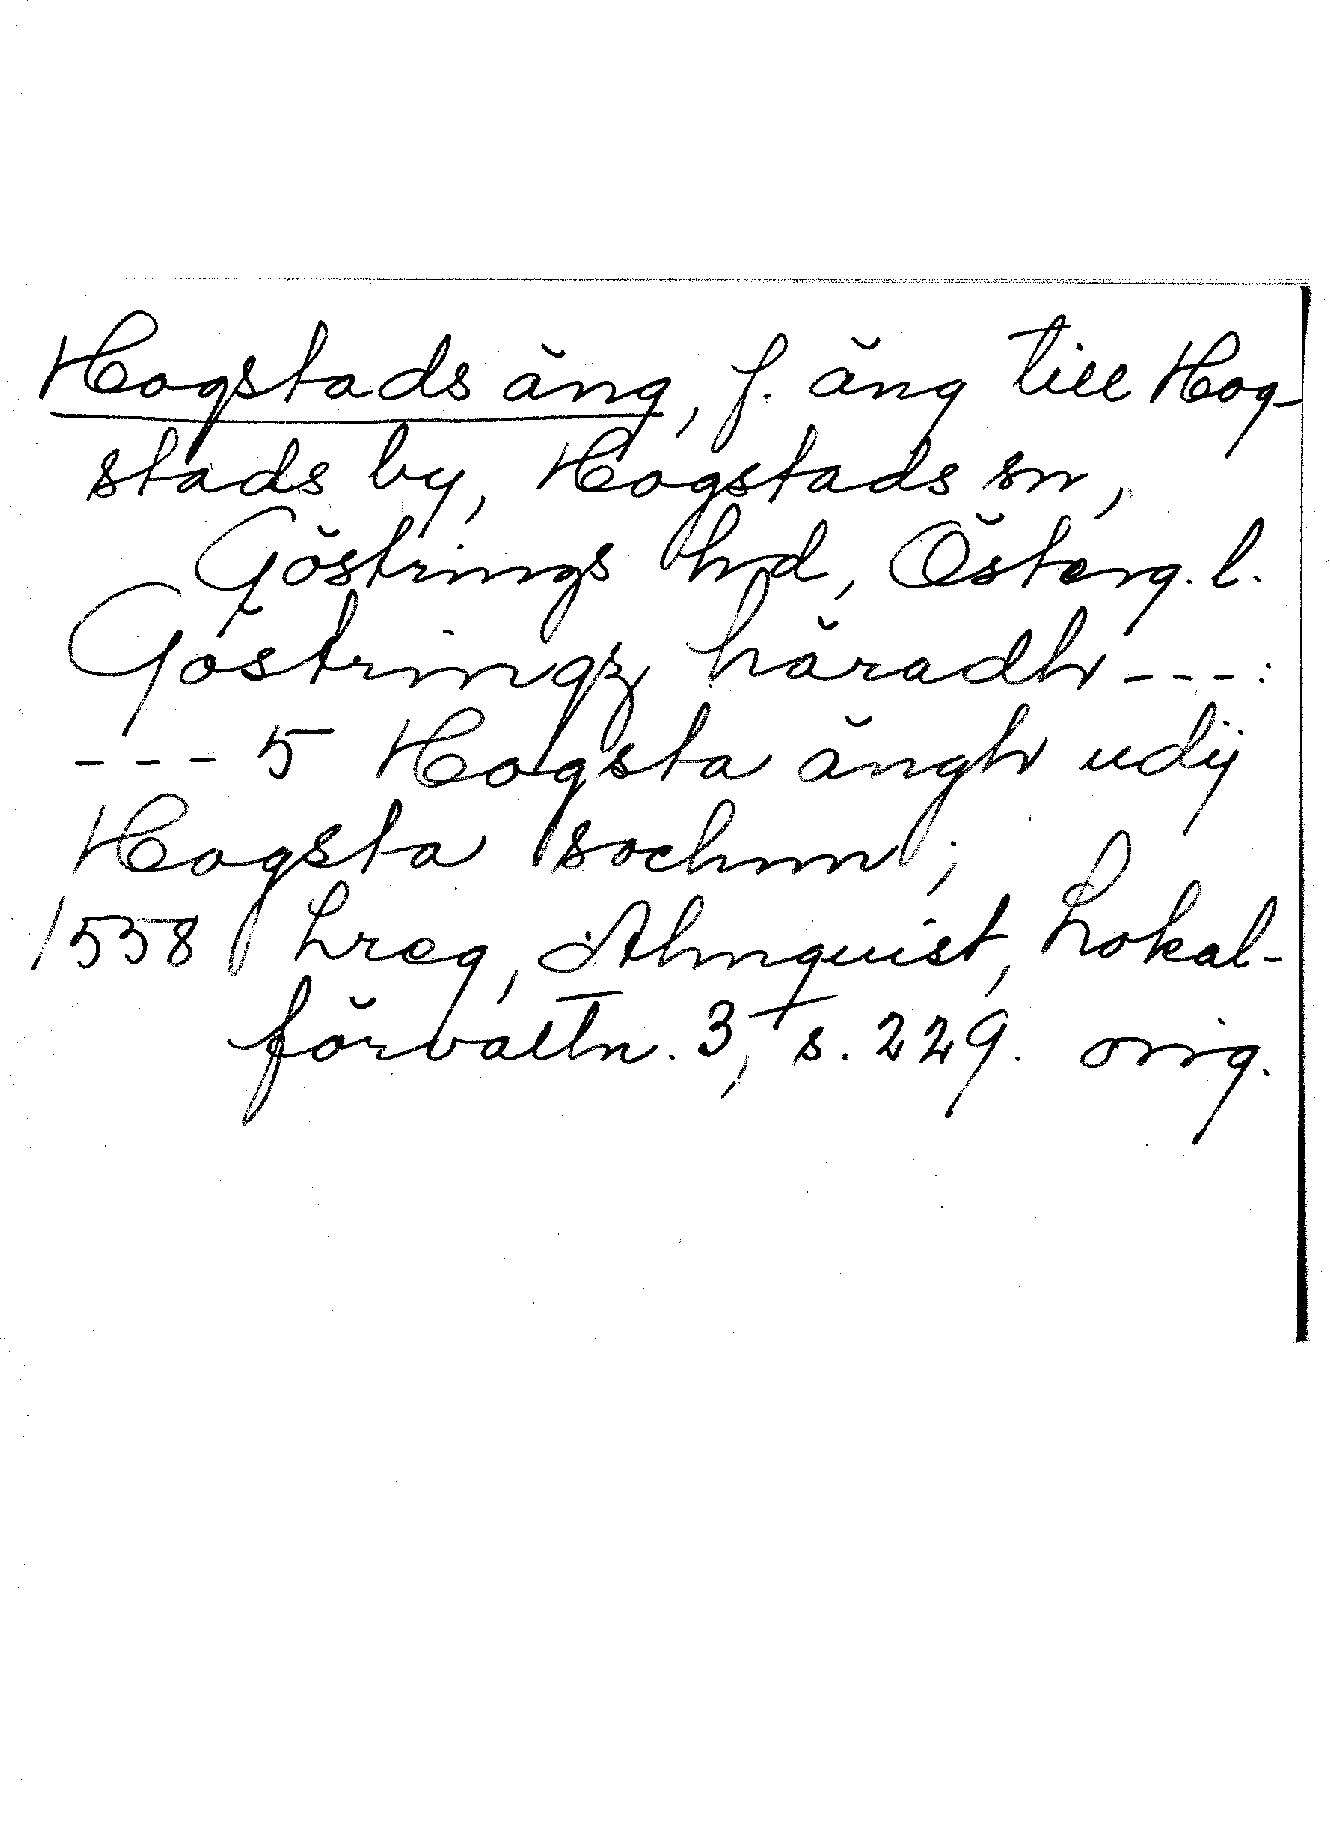 Hogstads äng, f. äng till Hog-
stads by, Hogstads sn,
Göstrings hd, Österg. l.
Göstringz häradh ---:
--- 5 Hogsta ängh udij
Hogsta sochnn;
1558 Lreg, Almquist, Lokal-
förvaltn. 3, s. 229. orig.